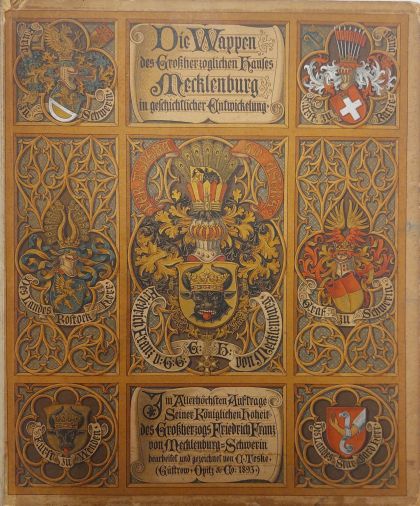 Die Wappen
des Großherzoglichen Hauses
Mecklenburg
in geschichtlicher Entwickelung.
Schwerin
Des Landes Rostock Herr
Friedrich Franz v. G. G. G. H. von Mecklenburg
Graf zu Schwerin
Fürst zu Wenden
Des Lands Stargard Herr
Im Allerhöchsten Auftrage
Seiner Königlichen Hoheit
des Großherzogs Friedrich Franz
von Mecklenburg-Schwerin
bearbeitet und gezeichnet von C. Teske.
(Güstrow · Opitz & Co: 1893.)